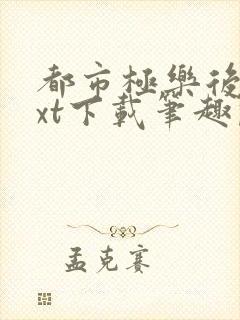 都市極樂後
xt下載筆趣
孟克賽